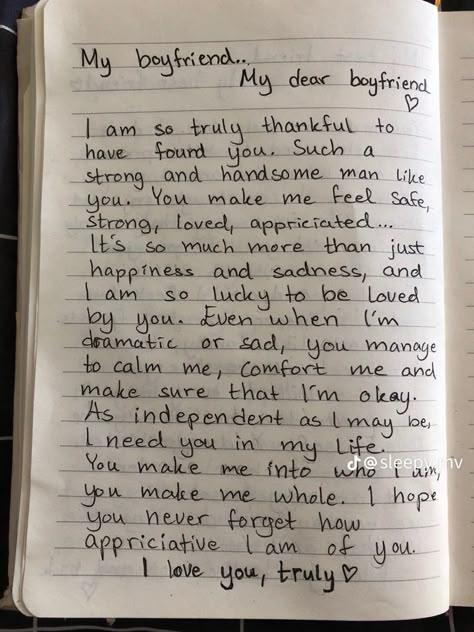 My boyfriend..
My dear boyfriend
♡
I am so truly thankful to
have found you. Such a
strong and handsome man like
you. You make me feel safe,
strong, loved, appriciated...
It's so much more than just
happiness and sadness, and
I am so lucky to be loved
by you. Even when I'm
dramatic or sad, you manage
to calm me, comfort me and
make sure that I'm okay.
As independent as I may be,
I need you in my life.
You make me into who I am,
@sleepy mv
you make me whole. I hope
you never forget how
appriciative I am of you.
I love you, truly ♡